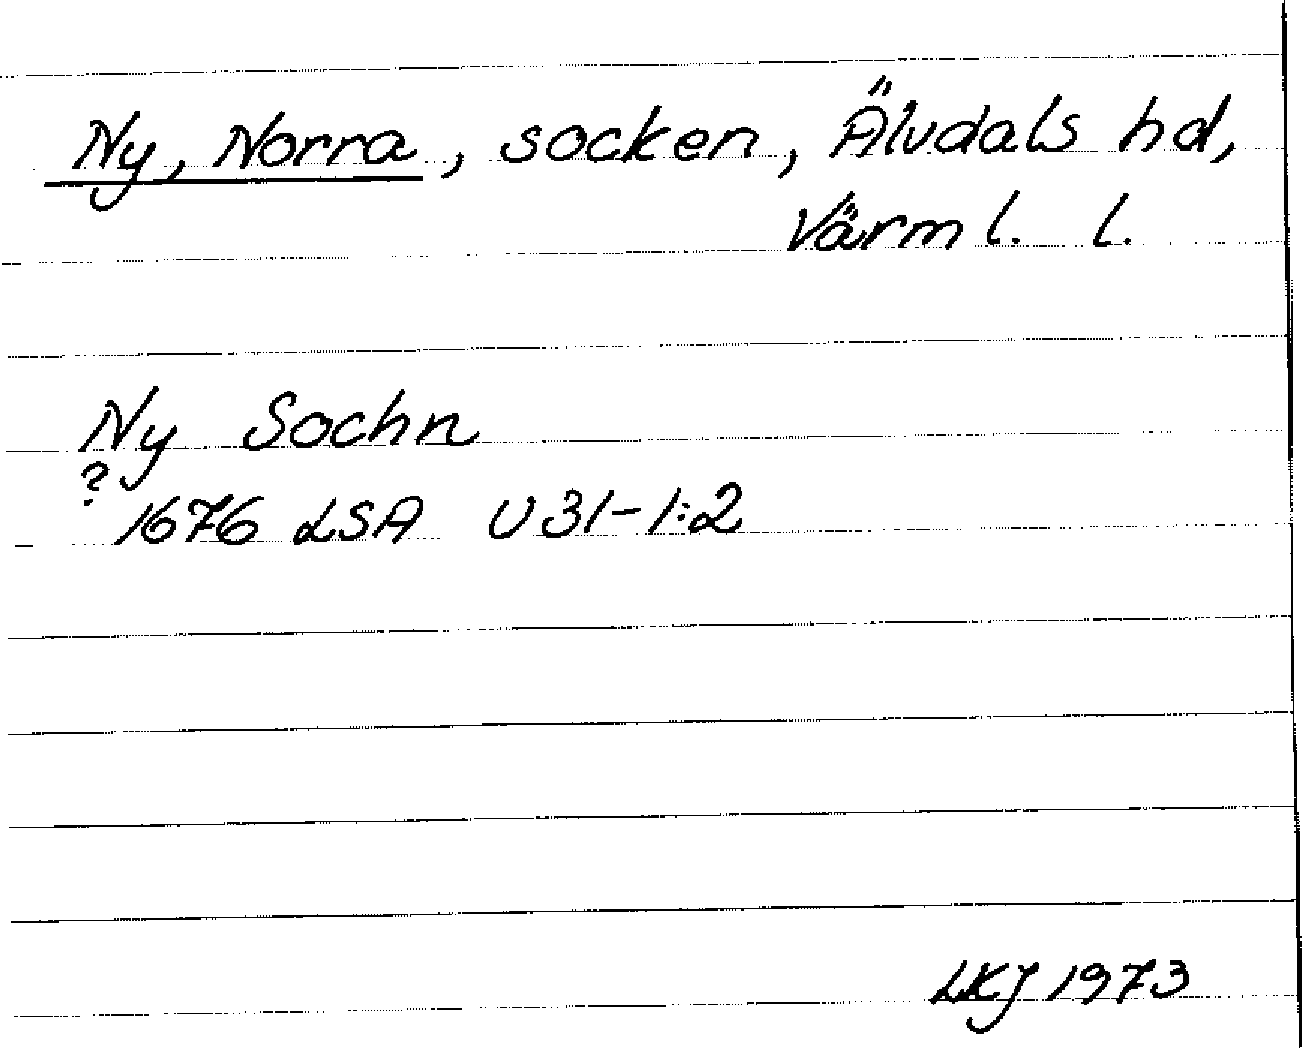 Ny, Norra, socken, Älvdals hd,
Värml. l.
Ny Sochn
?
1676 LSA U31-1:2
LKJ 1973